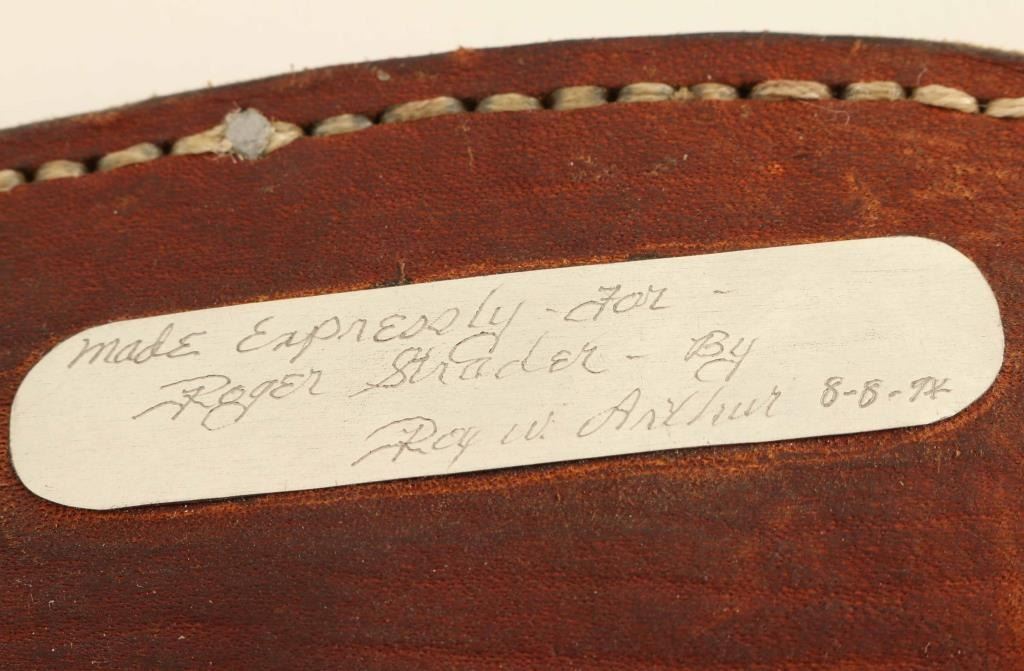 made Expressly - For -
Roger Strader - By
Roy W. Arthur 8-8-94